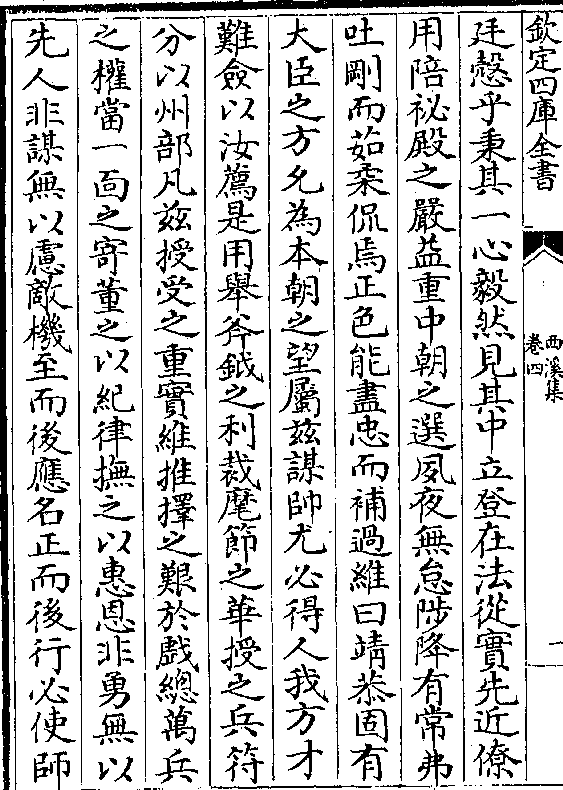 欽定四庫全書
西溪集
卷四
一
廷愨乎秉其一心毅然見其中立登在法從實先近僚
用陪祕殿之嚴益重中朝之選夙夜無怠陟降有常弗
吐剛而茹柔侃焉正色能盡忠而補過維曰靖恭固有
大臣之方允為本朝之望屬兹謀帥尤必得人我方才
難僉以汝薦是用舉斧鉞之利裁麾節之華授之兵符
分以州部凡兹授受之重實維推擇之艱於戲總萬兵
之權當一面之寄董之以紀律撫之以惠恩非勇無以
先人非謀無以慮敵機至而後應名正而後行必使師